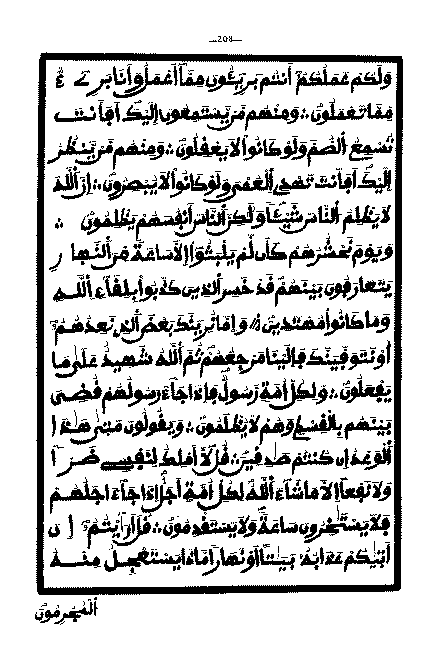 —208—
وَلَكُمْ عَمَلُكُمْ أَنتُم بَرِيـُٔونَ مِمَّا أَعْمَلُ وَأَنَا بَرِےٓءٞ
مِّمَّا تَعْمَلُونَ ∴ وَمِنْهُم مَّنْ يَّسْتَمِعُونَ إِلَيْكَ أَفَأَنتَ
تُسْمِعُ ٱلصُّمَّ وَلَوْ كَانُواْ لَا يَعْقِلُونَ ∴ وَمِنْهُم مَّنْ يَّنظُرُ
إِلَيْكَ أَفَأَنتَ تَهْدِى ٱلْعُمْىَ وَلَوْ كَانُواْ لَا يُبْصِرُونَ ∴ إِنَّ ٱللَّهَ
لَا يَظْلِمُ ٱلنَّاسَ شَيْـًٔا وَلَٰكِنَّ ٱلنَّاسَ أَنفُسَهُمْ يَظْلِمُونَ ∴
وَيَوْمَ نَحْشُرُهُمْ كَأَن لَّمْ يَلْبَثُواْ إِلَّا سَاعَةً مِّنَ ٱلنَّهارِ
يَتَعَارَفُونَ بَيْنَهُمْ قَدْ خَسِرَ ٱلذِينَ كَذَّبُواْ بِلِقَآءِ ٱللَّهِ
وَمَا كَانُواْ مُهْتَدِينَ ∴ وَإِمَّا نُرِيَنَّكَ بَعْضَ ٱلذِى نَعِدُهُمْ
أَوْ نَتَوَفَّيَنَّكَ فَإِلَيْنَا مَرْجِعُهُمْ ثُمَّ ٱللَّهُ شَهِيدٌ عَلَىٰ مَا
يَفْعَلُونَ ∴ وَلِكُلِّ أُمَّةٍ رَّسُولٌ فَإِذَا جَآءَ رَسُولُهُمْ قُضِىَ
بَيْنَهُم بِالْقِسْطِ وَهُمْ لَا يُظْلَمُونَ ∴ وَيَقُولُونَ مَتَىٰ هَٰذَا
ٱلْوَعْدُ إِن كُنتُمْ صَٰدِقِينَ ∴ قُل لَّا أَمْلِكُ لِنَفْسِے ضَرًّا
وَلَا نَفْعاً إِلَّا مَا شَآءَ ٱللَّهُ لِكُلِّ أُمَّةٍ أَجَلٌ إِذَا جَآءَ اجَلُهُمْ
فَلَا يَسْتَـْٔخِرُونَ سَاعَةً وَلَا يَسْتَقْدِمُونَ ∴ قُلْ أَرَآيْتُمُ إِنْ
أَتَيٰكُمْ عَذَابُهُۥ بَيَٰتًا أَوْ نَهَارًا مَّاذَا يَسْتَعْجِلُ مِنْهُ
ٱلْمُجْرِمُونَ